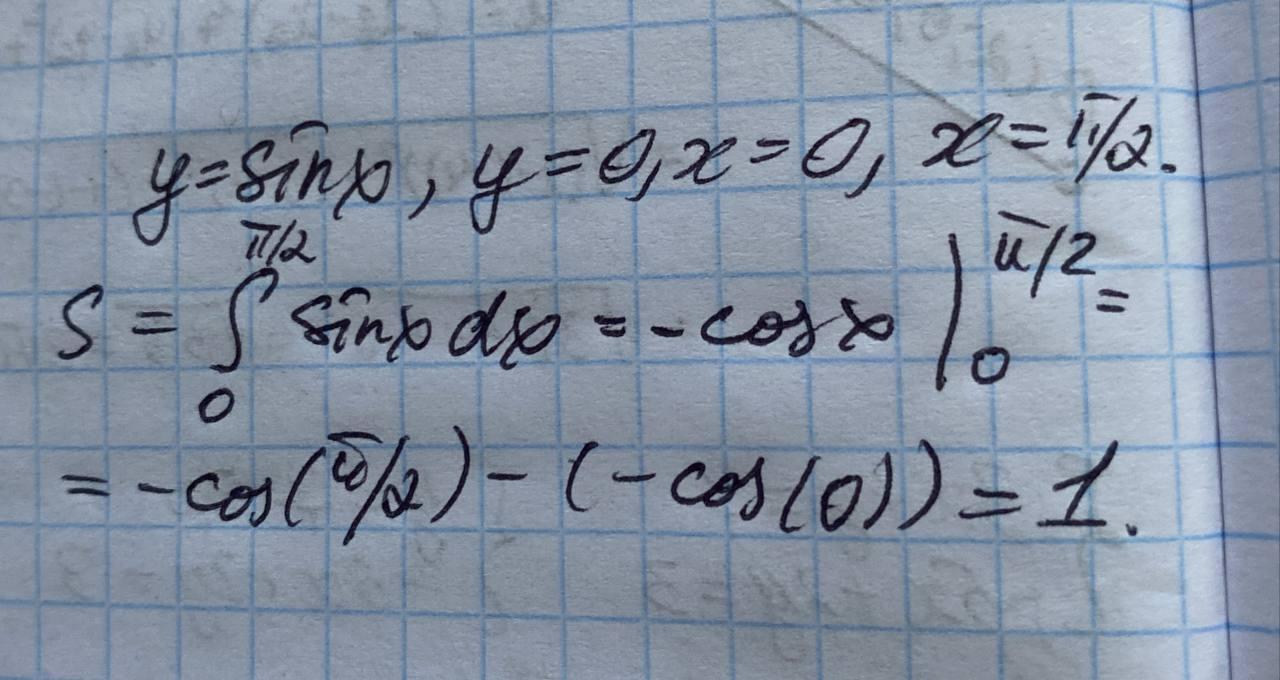 y = sin x, y = 0, x = 0, x = π/2.
S = ∫₀^{π/2} sin x dx = - cos x |₀^{π/2} =
= - cos(π/2) - (- cos(0)) = 1.